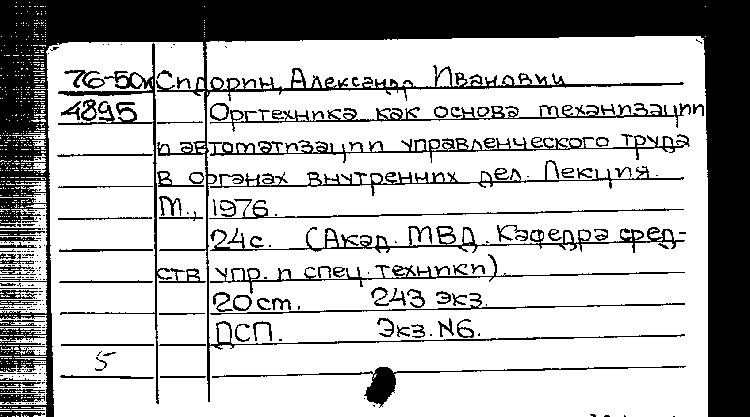 76-50к Сидорин, Александр Иванович
4895 Оргтехника как основа механизации
и автоматизации управленческого труда
в органах внутренних дел. Лекция.
М., 1976.
24с. (Акад. МВД. Кафедра сред-
ств упр. и спец. техники).
20 ст. 243 экз.
ДСП. Экз. №6.
5